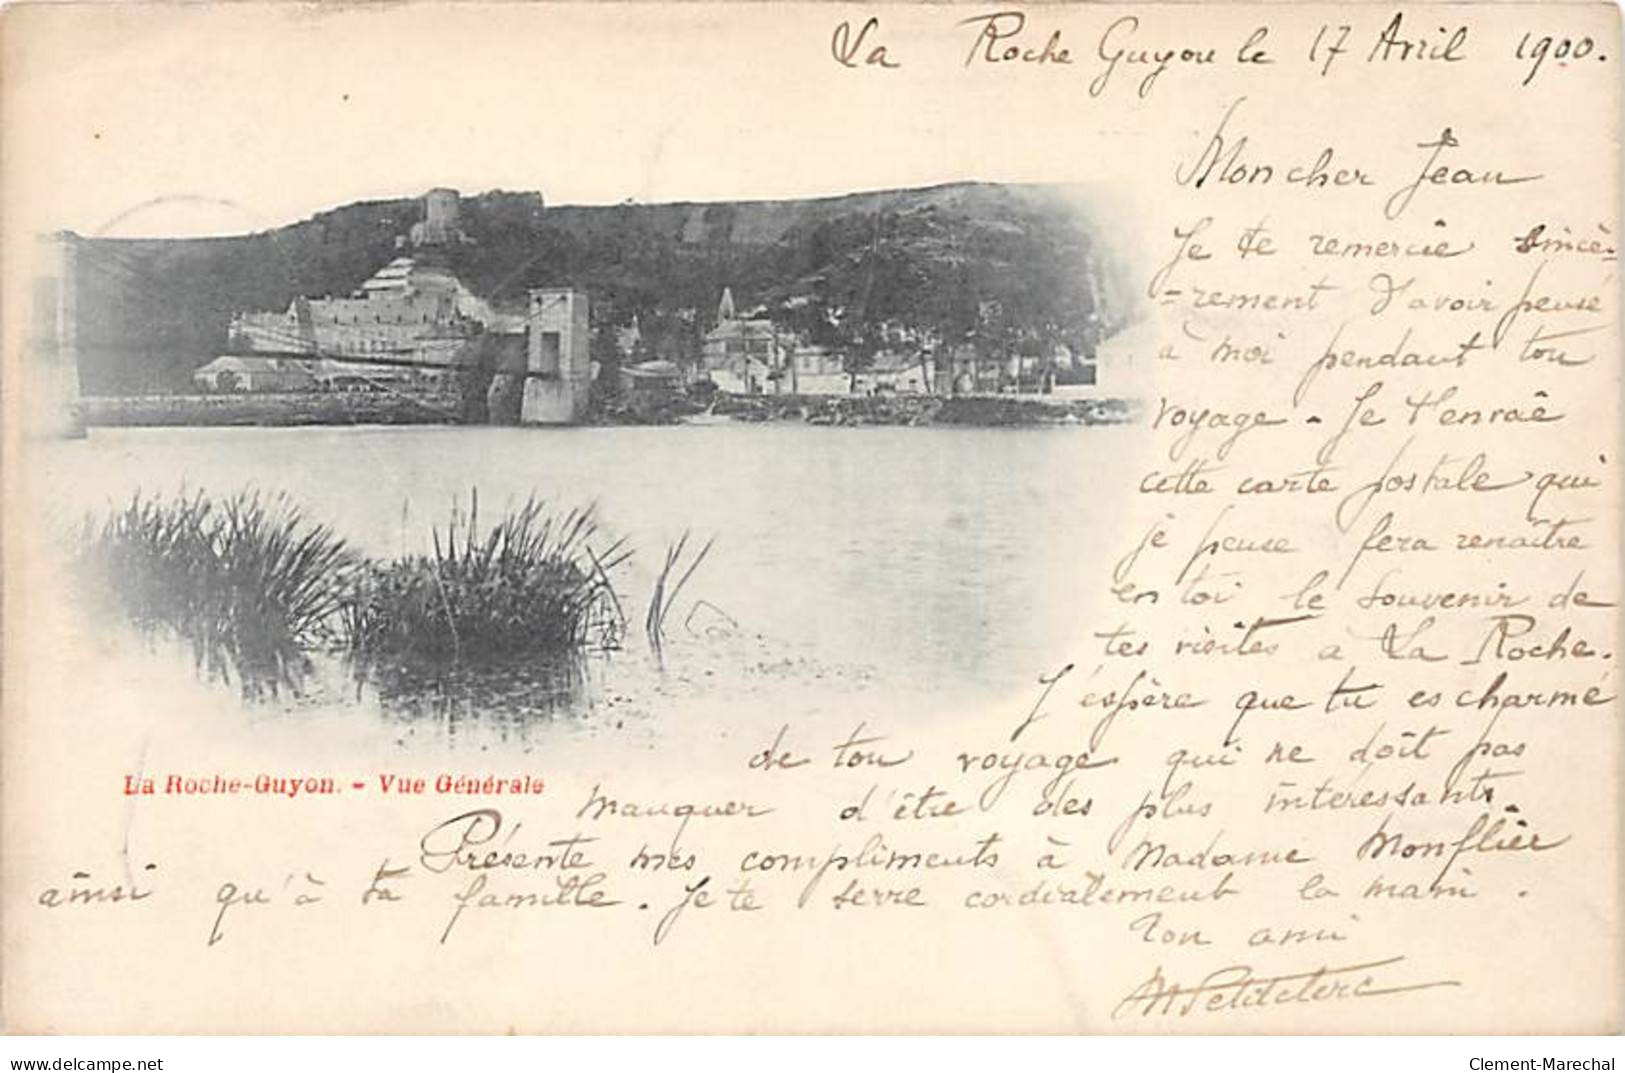 La Roche Guyon le 17 Avril 1900.
Mon cher Jean
Je te remercie sincè-
-rement d'avoir pensé
à moi pendant ton
voyage - Je t'envoie
cette carte postale qui
je pense fera renaître
en toi le souvenir de
tes visites à La Roche.
J'espère que tu es charmé
de ton voyage qui ne doit pas
manquer d'être des plus intéressants.
Présente mes compliments à Madame Monflier
ainsi qu'à ta famille. Je te serre cordialement la main.
Ton ami
M Petitclerc
La Roche-Guyon. - Vue Générale
delcampe.net
Clement-Marechal